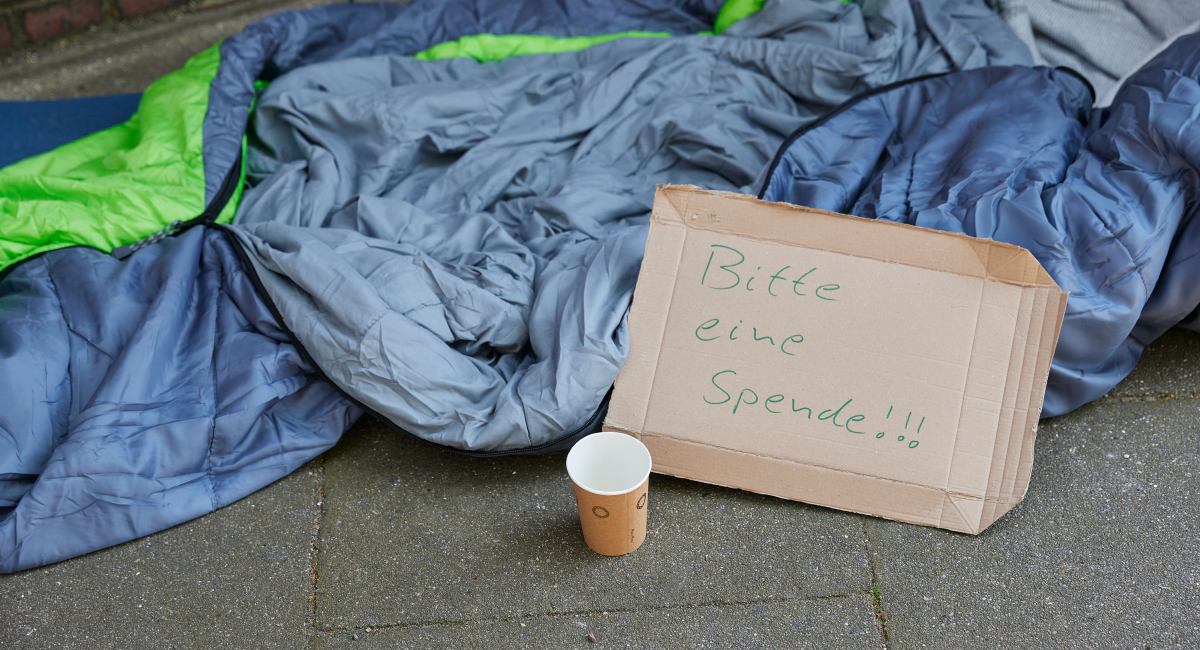 Bitte
eine
Spende!!!